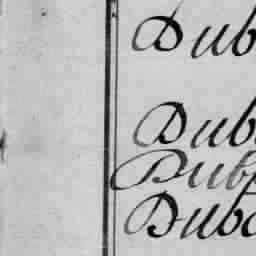 Dub
Dub
Dub
Dubo